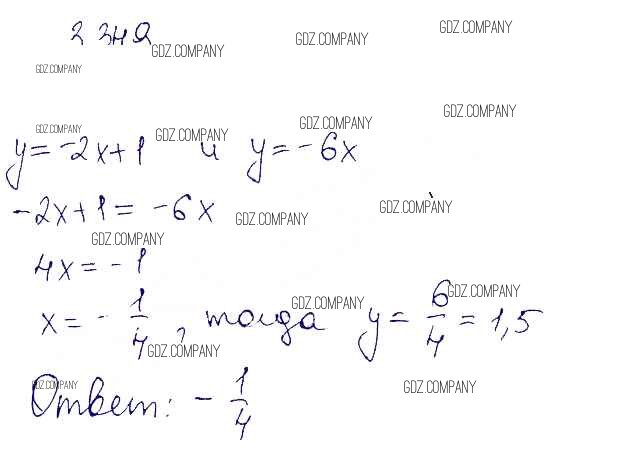 GDZ.COMPANY GDZ.COMPANY GDZ.COMPANY
GDZ.COMPANY
GDZ.COMPANY
GDZ.COMPANY GDZ.COMPANY GDZ.COMPANY
y = -2x + 1 и y = -6x
-2x + 1 = -6x
GDZ.COMPANY GDZ.COMPANY
GDZ.COMPANY
4x = -1
GDZ.COMPANY GDZ.COMPANY
x = - 1/4, тогда y = 6/4 = 1,5
GDZ.COMPANY
GDZ.COMPANY GDZ.COMPANY
Ответ: - 1/4